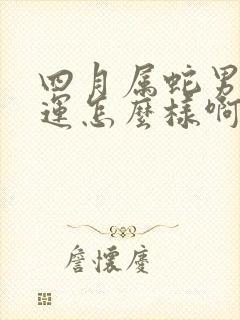 四月属蛇男
運怎麼樣啊
詹懷慶